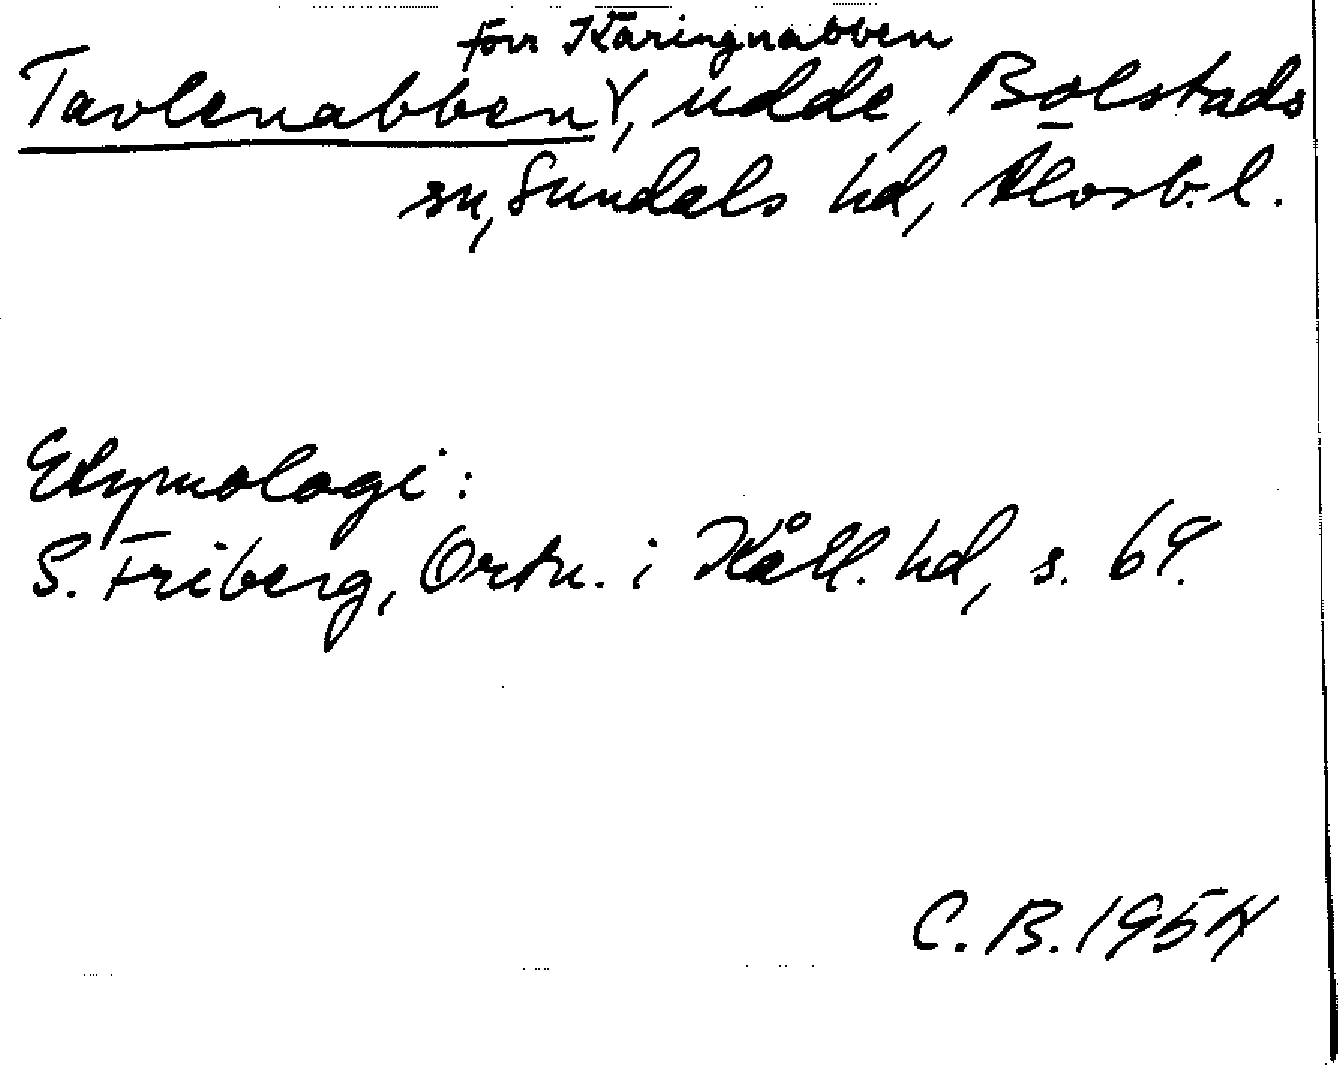 förr Käringnabben
Tavlenabben, udde, Bolstads
sn, Sundals hd, Älvsb. l.
Etymologi:
S. Friberg, Ortn. i Kåll. hd, s. 69.
C. B. 1954